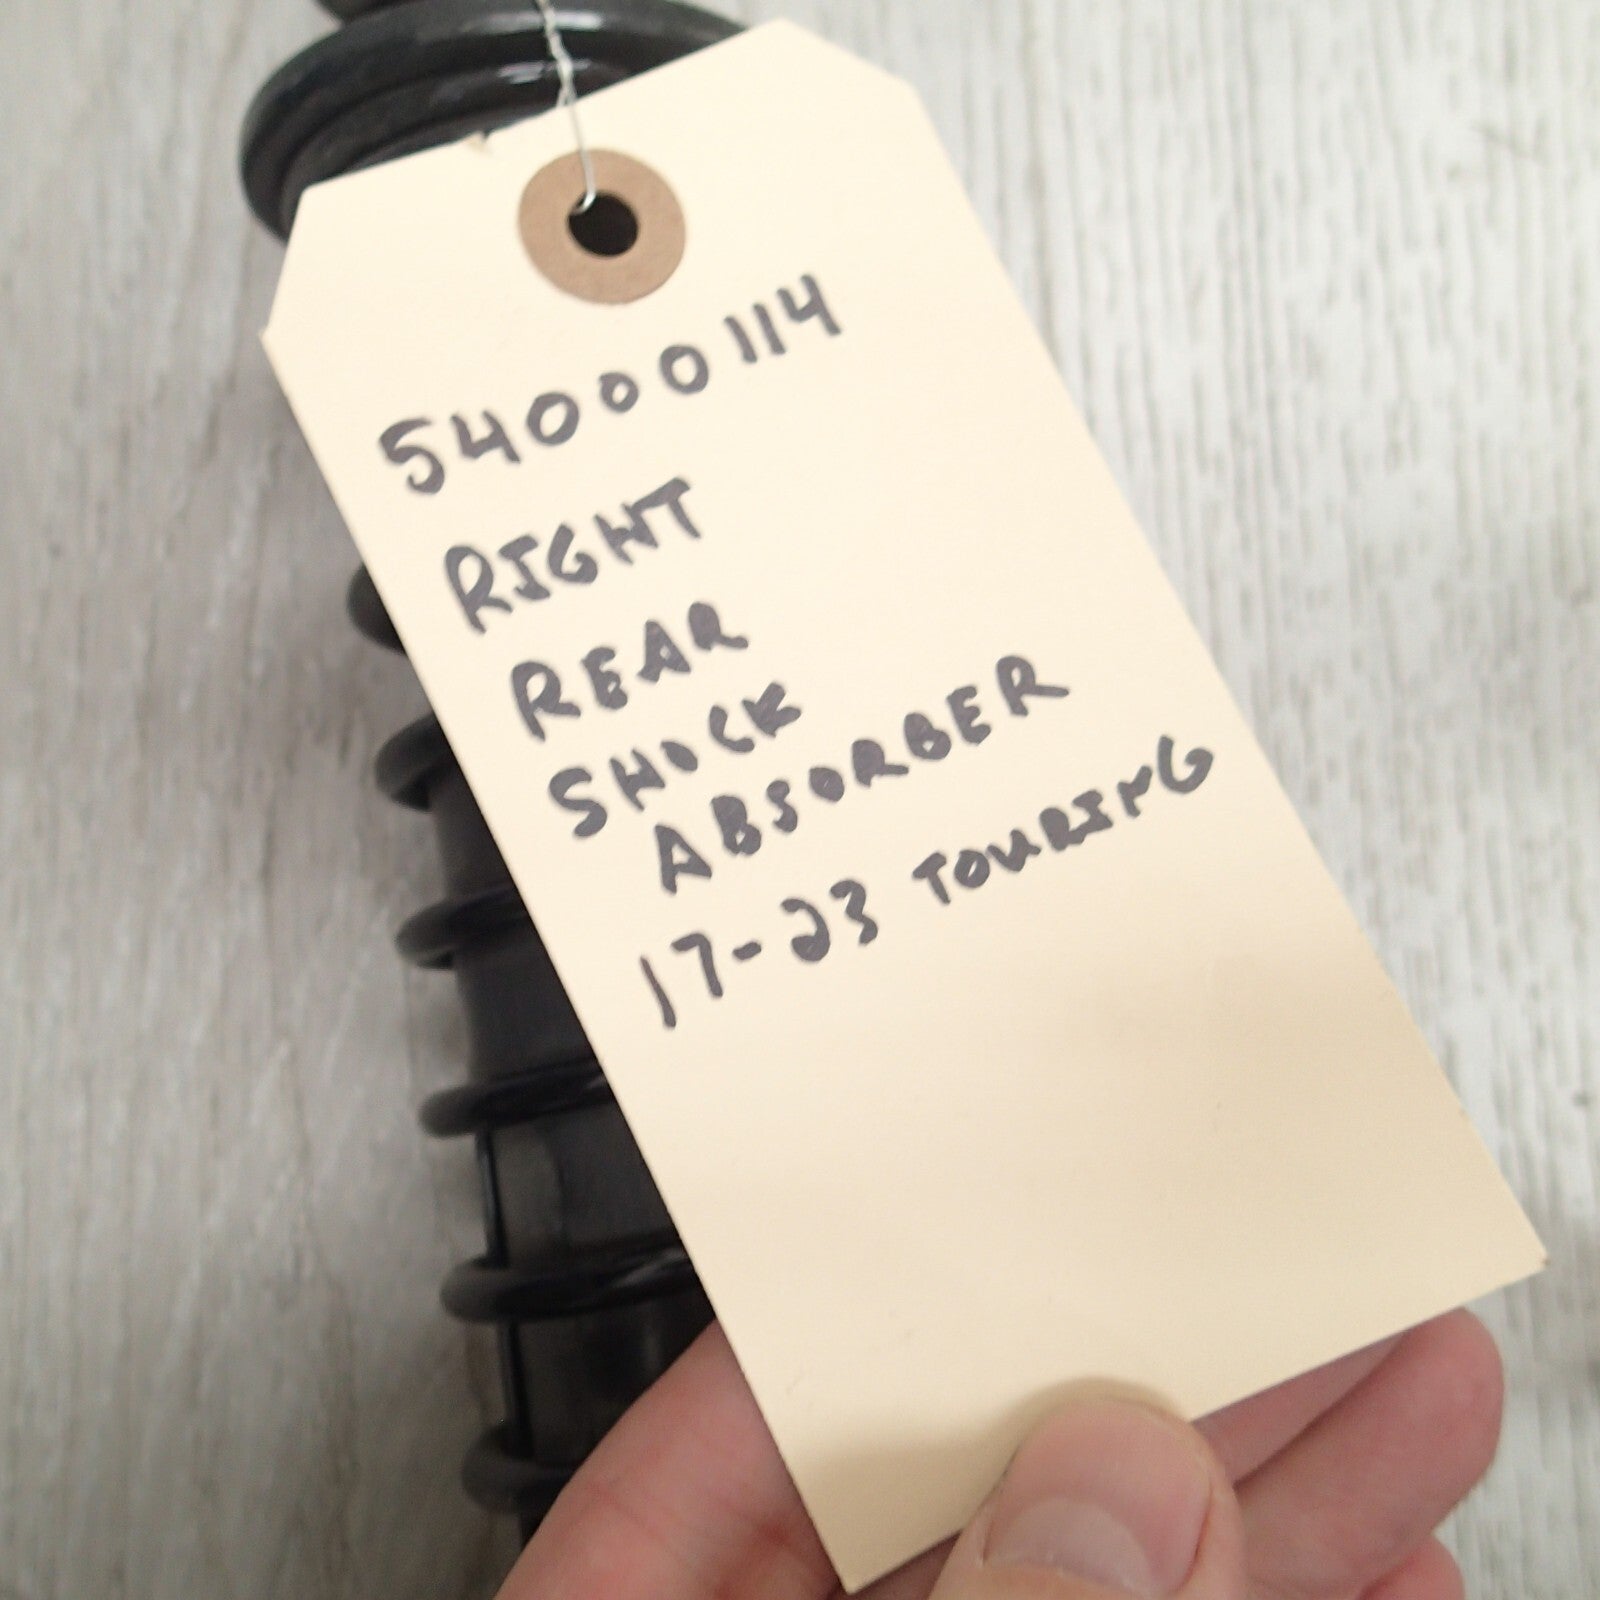 54000114
RIGHT
REAR
SHOCK
ABSORBER
17-23 TOURING